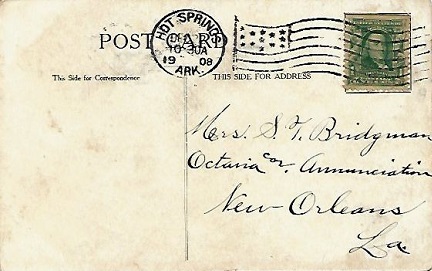 POST CARD
HOT SPRINGS
DEC
10-30A
1908
ARK.
This Side for Correspondence
THIS SIDE FOR ADDRESS
Mrs. S. F. Bridgman
Octavia cor. Annunciation
New Orleans
La.